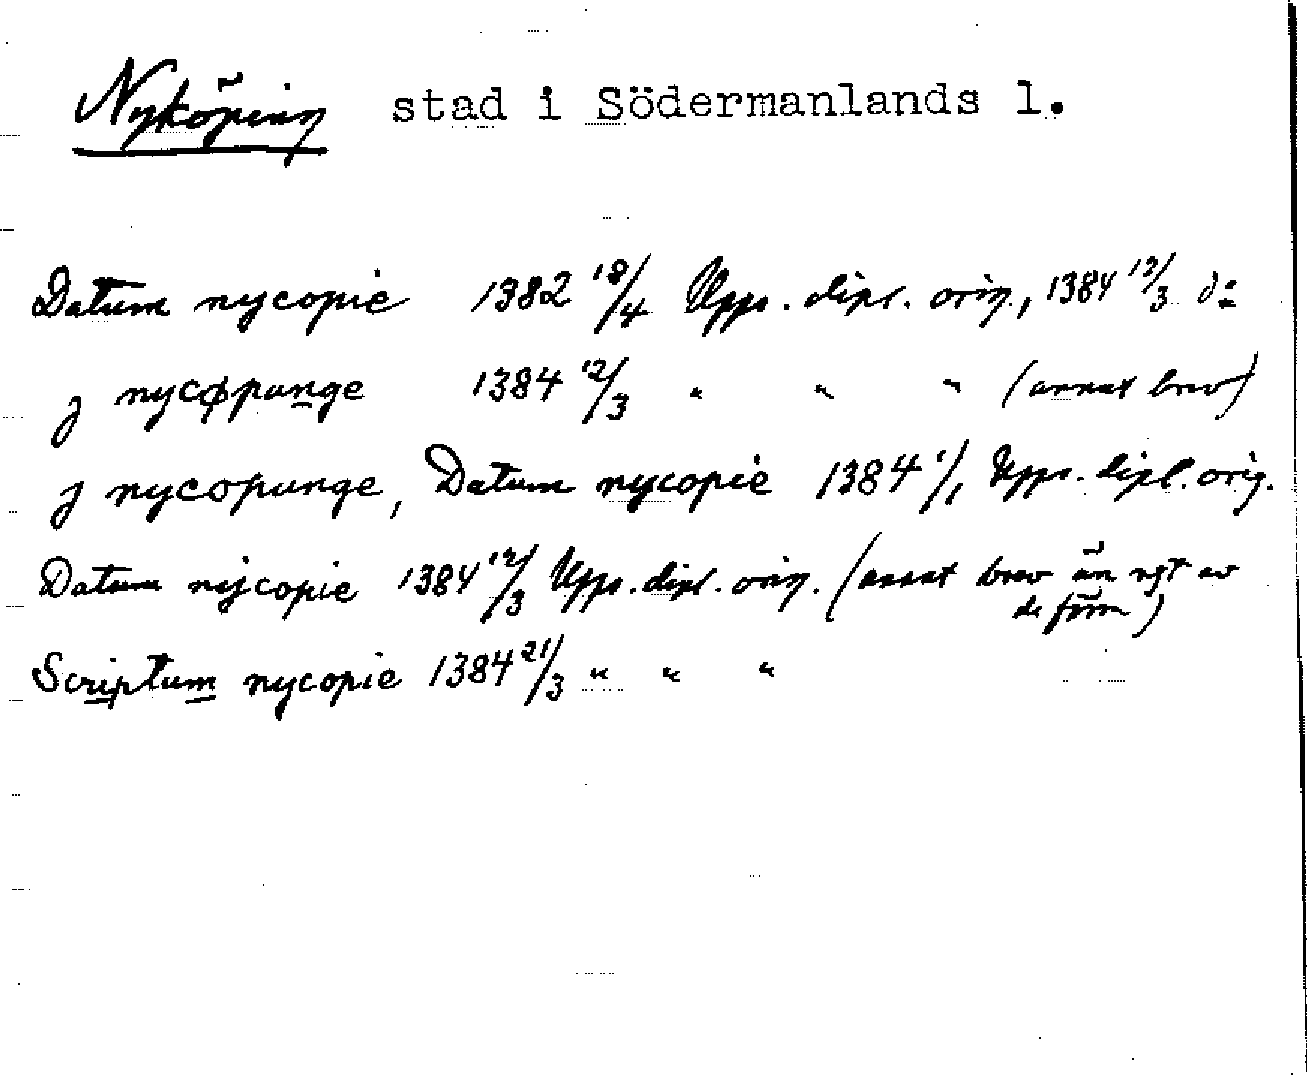 Nyköping stad i Södermanlands l.
Datum nycopie 1382 18/4 Upps. dipl. orig., 1384 12/3 d:
j nycøpunge 1384 12/3 " " " (annat brev)
j nycopunge, Datum nycopie 1384 1/1 Upps. dipl. orig.
Datum nijcopie 1384 12/3 Upps. dipl. orig. (annat brev än ngt av
de förra)
Scriptum nycopie 1384 21/3 " " "